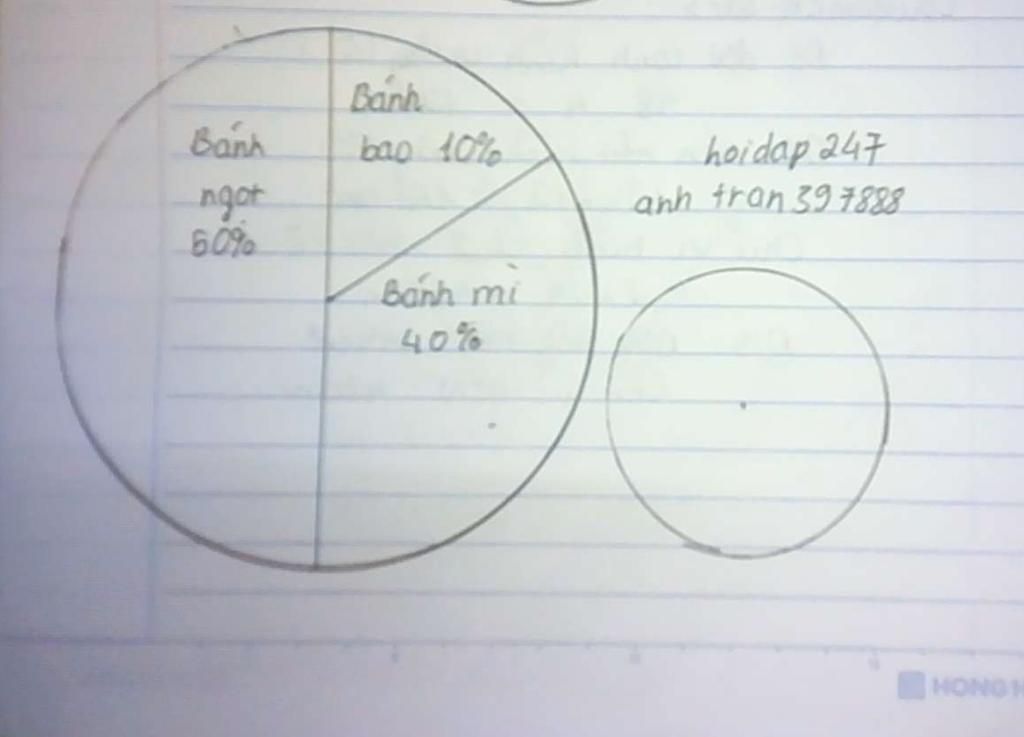 Bánh
ngọt
50%
Bánh
bao 10%
Bánh mì
40%
hoidap 247
anh tran 397888